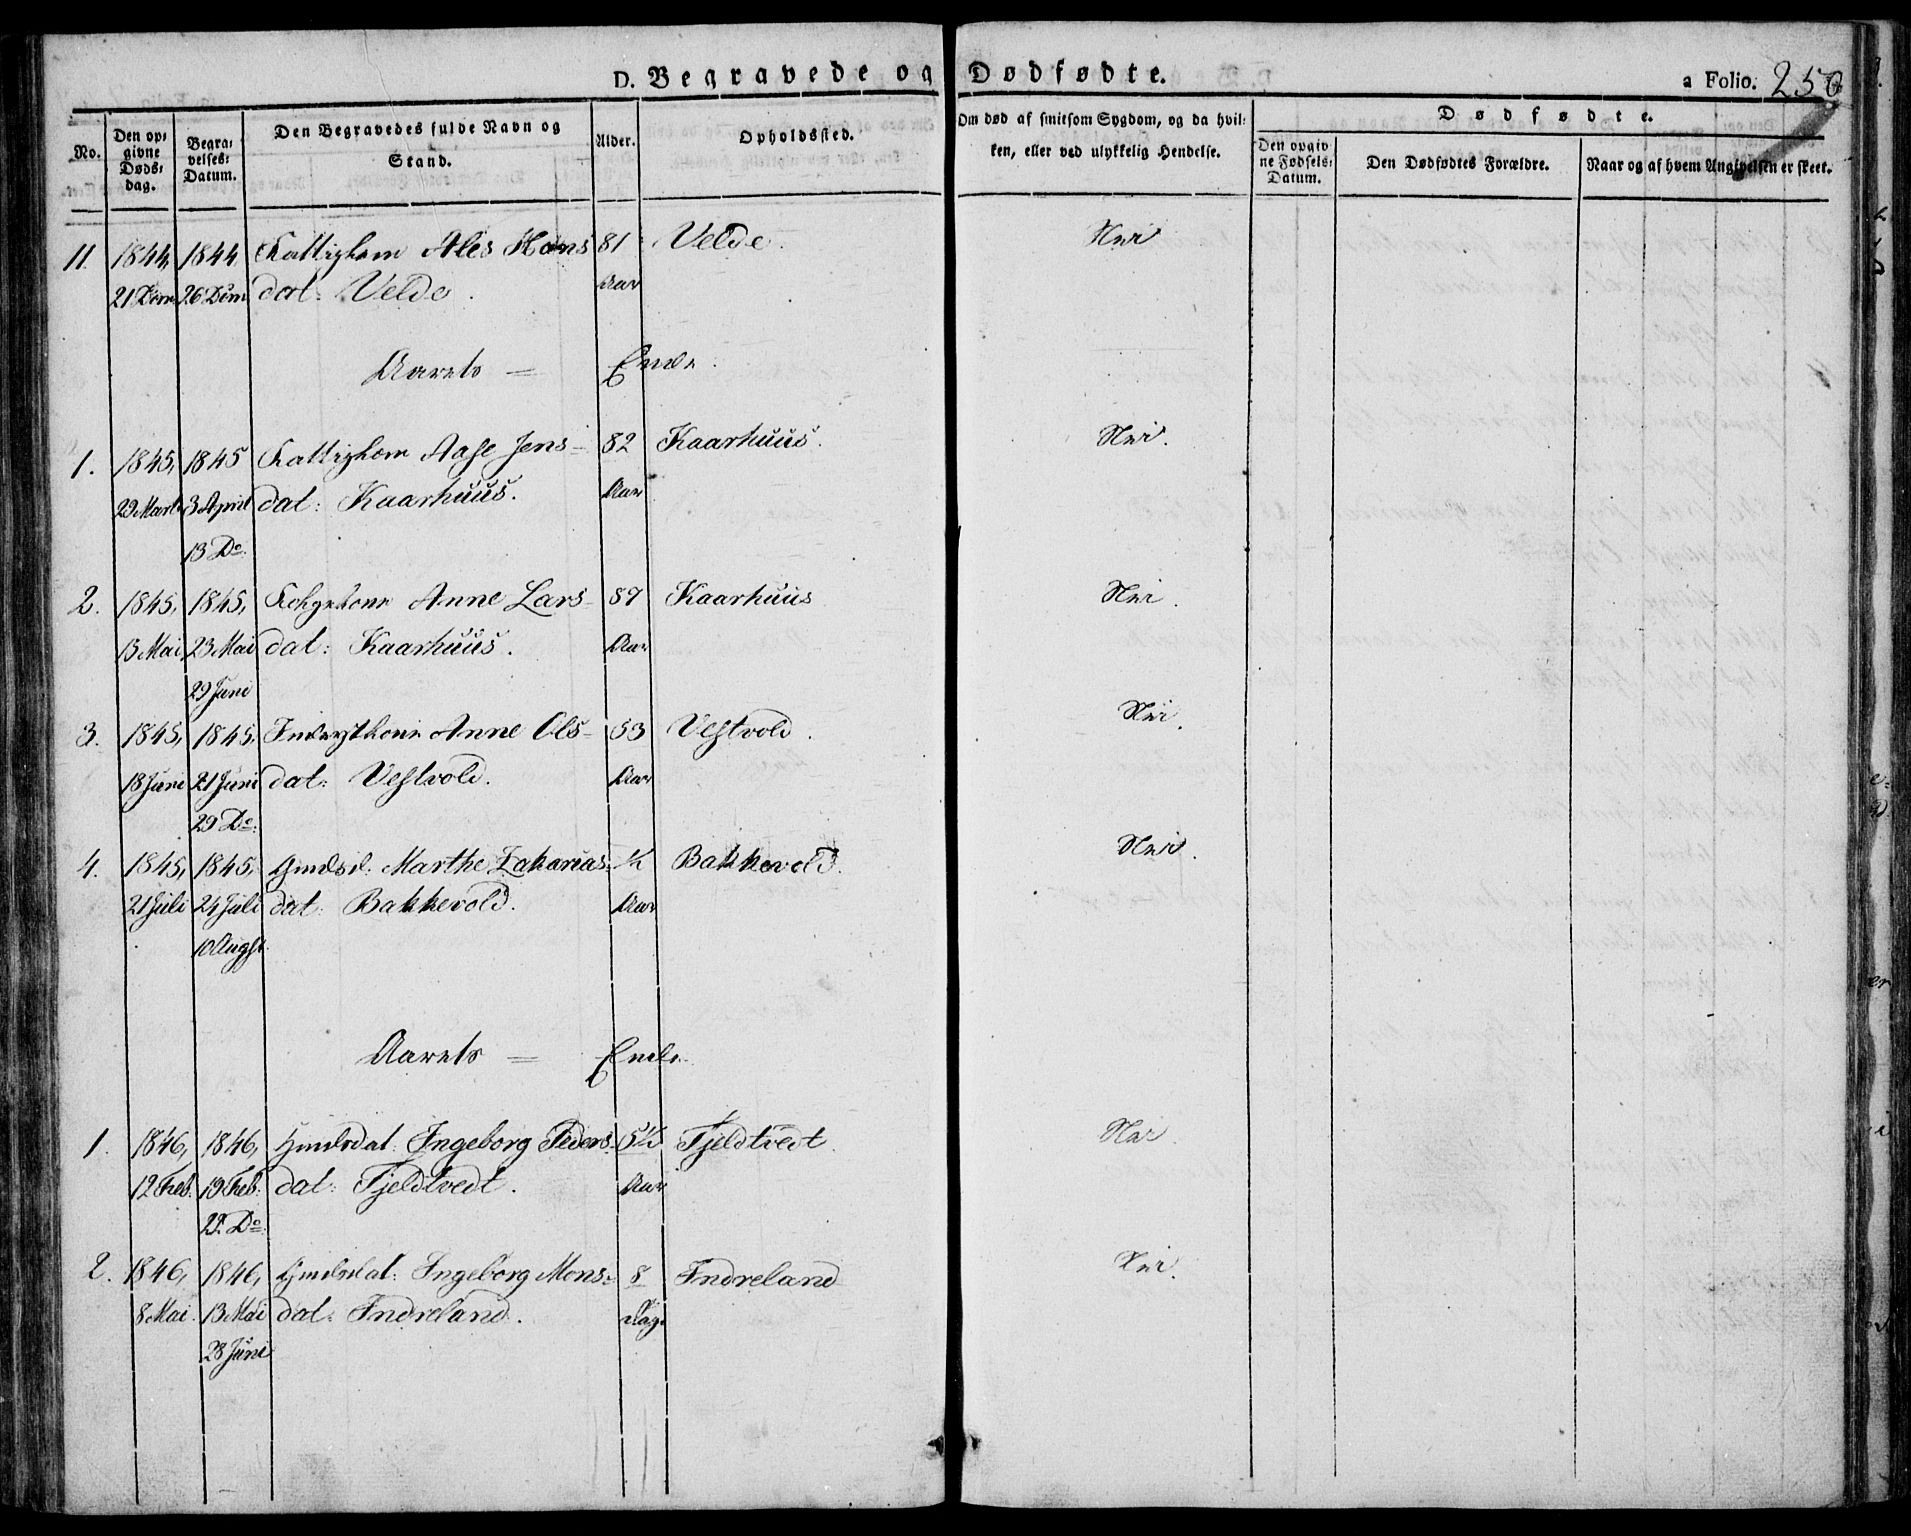 D. Begravede og Dødfødte.
a Folio. 250
No. Den opgivne Døds-dag. Begravelses-Datum. Den Begravedes fulde Navn og Stand. Alder. Opholdssted. Om død af smitsom Sygdom, og da hvilken, eller ved ulykkelig Hendelse.
Dødfødte.
Den opgivne Fødsels-Datum. Den Dødfødtes Forældre. Naar og af hvem Angivelsen er skeet.
11. 1844, 1844 Ales Hans 81 Velde. Nei
21 Dcm 26 Dcm dat: Velde. Aar
Aarets = Ende.
1. 1845, 1845 Aase Jens- 82 Kaarhuus. Nei.
29 Marts 3 April dat: Kaarhuus. Aar
13 Do.
2. 1845, 1845, Anne Lars- 87 Kaarhuus Nei.
13 Mai 23 Mai dat: Kaarhuus. Aar
29 Juni
3. 1845, 1845, Anne Ols- 53 Vestvold. Nei.
18 Juni 21 Juni dat: Vestvold. Aar
29 Do.
4. 1845, 1845, Marthe Zakarias- Bakkevold. Nei.
21 Juli 24 Juli dat: Bakkevold. Aar
10 Augst.
Aarets = Ende.
1. 1846, 1846, Ingeborg Peders- 5½ Tjeldtvedt. Nei.
12 Feb. 19 Feb: dat: Tjeldtvedt. Aar
22. Do.
2. 1846, 1846, Ingeborg Mons- 8 Indreland Nei.
8 Mai. 13 Mai dat: Indreland. Dage
28 Juni